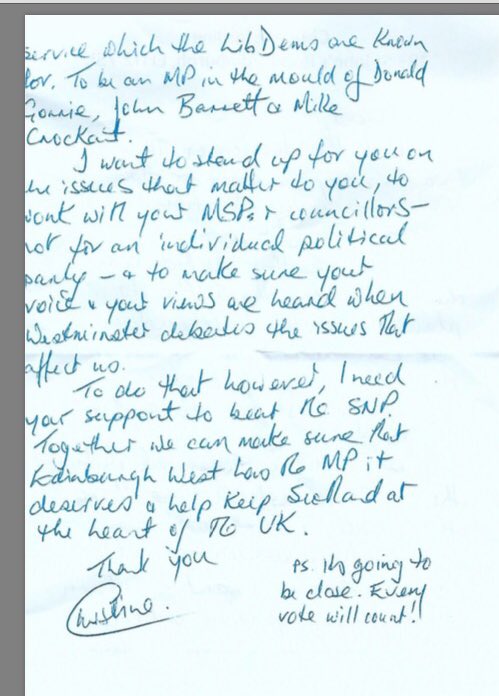 service which the LibDems are known
for. To be an MP in the mould of Donald
Gorrie, John Barrett or Mike
Crockart.
I want to stand up for you on
the issues that matter to you, to
work with your MSPs & councillors –
not for an individual political
party – & to make sure your
voice & your views are heard when
Westminster debates the issues that
affect us.
To do that however, I need
your support to beat the SNP.
Together we can make sure that
Edinburgh West has the MP it
deserves & help keep Scotland at
the heart of the UK.
Thank you
Christine.
PS. It's going to
be close. Every
vote will count!